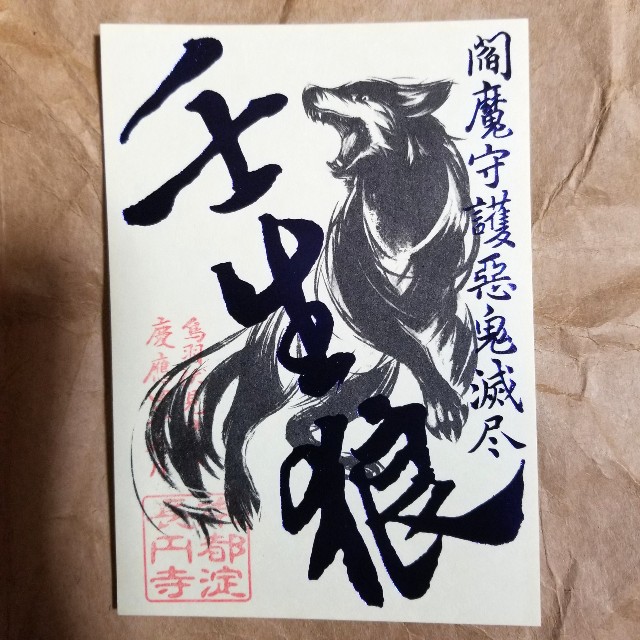 閻魔守護惡鬼滅尽
壬生狼
鳥羽
慶應
京都淀
長円寺